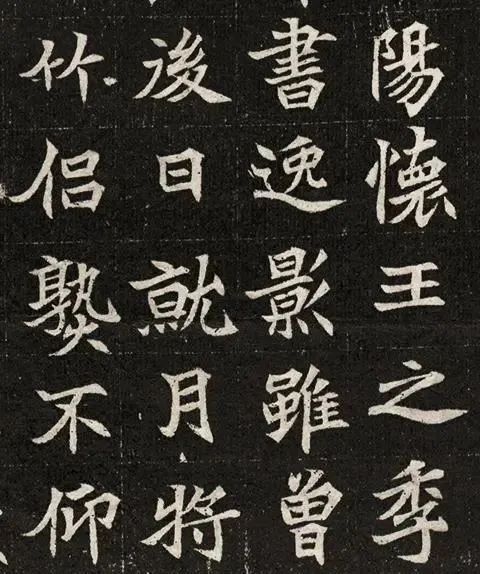 陽懷王之季
書逸影雖曾
後日就月將
竹侣熟不仰